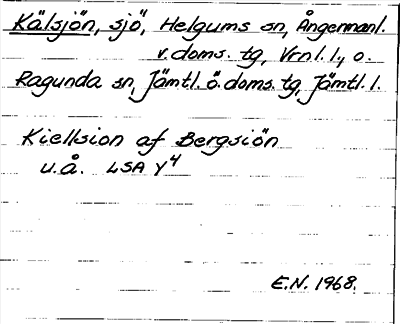 Kälsjön, sjö, Helgums sn, Ångermanl.
v. doms. tg, Vrnl. l., o.
Ragunda sn, Jämtl. ö. doms. tg, Jämtl. l.
Kiellsion af Bergsiön
u.å. LSA Y4
E.N. 1968.